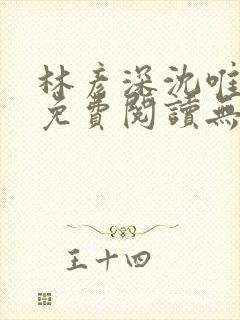 林彦深沈唯
免費閱讀無
王十四